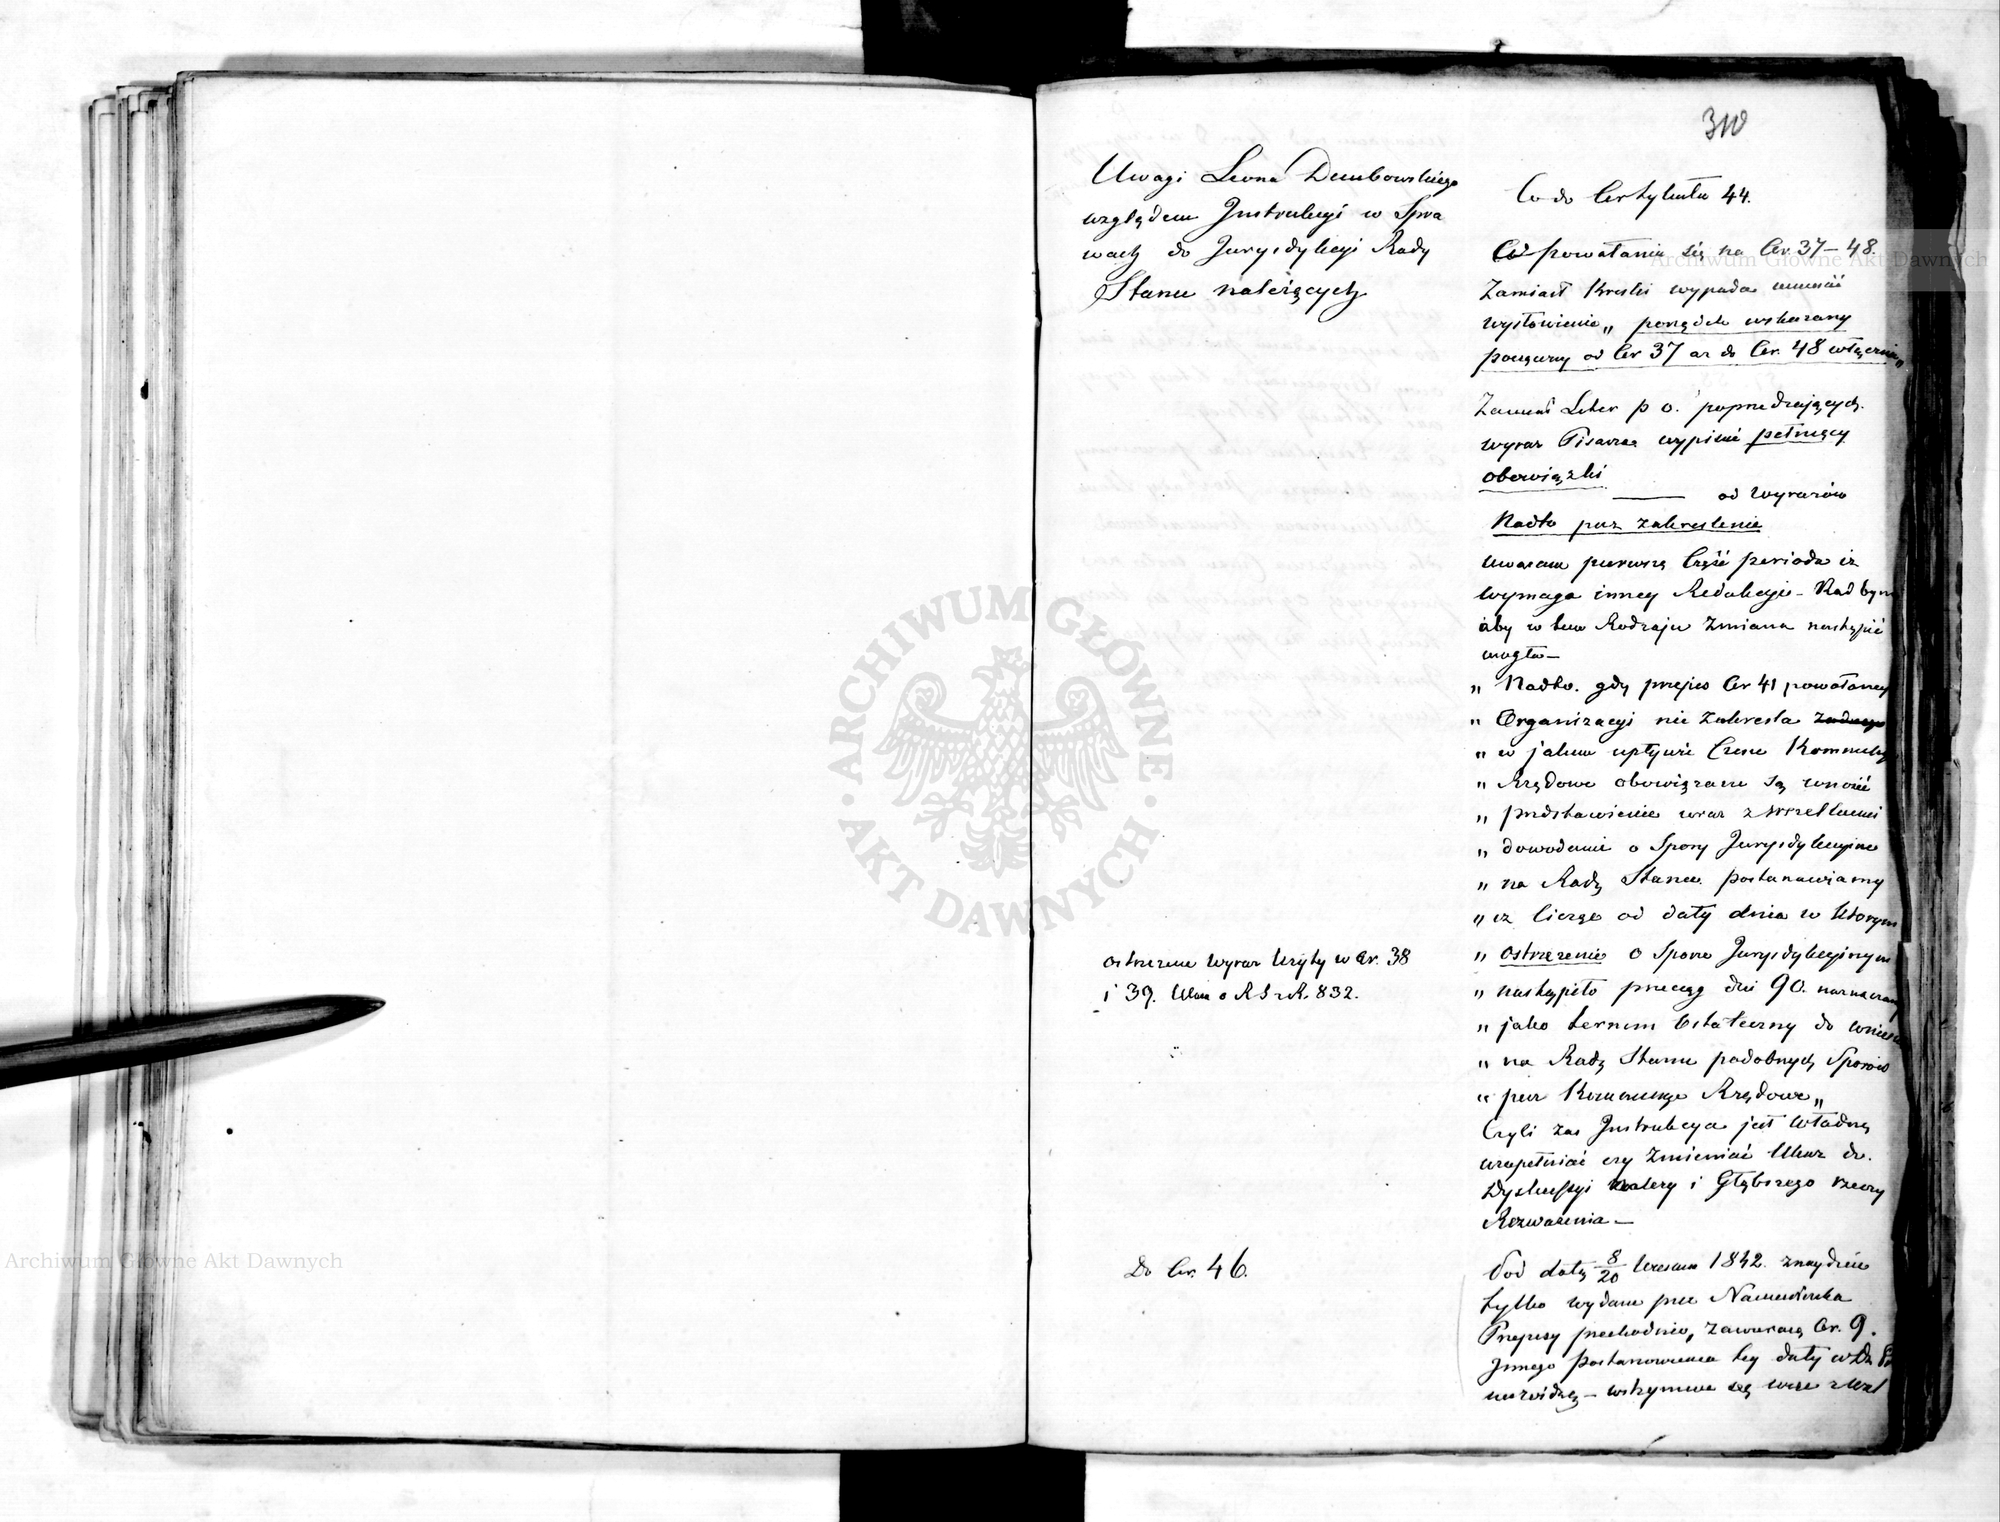 310
Uwagi Leona Dembowskiego
względem Instrukcyi w Spra
wach do Jurysdykcyi Rady
Stanu należących
Co do Artykułu 44.
powołanie się na Ar. 37–48.
Zamiast Kreski wypada umieść
wysłowienie „ porządek wskazany
począwszy od Ar 37 az do Ar. 48 włącznie „
Zamiast Liter p o. poprzedzających
wyraz Pisarza wypisać pełniący
obowiązki
od wyrazów
Nadto przez zakreslenie
uwazam pierwszą Część perioda iz
wymaga inney Redakcyi – Rad bym
aby w tem Rodzaju zmiana nastąpić
mogła –
„ Nadto. gdy przepis Ar 41 powołaney
„ Organizacyi nie zakresla zadnego
„ w jakim upływie Czasu Kommissye
„ Rządowe obowiązane są wnosić
„ przedstawienie wraz z wszelkiemi
„ dowodami o Spory Jurysdykcyine
„ na Radę Stanu. postanawiamy
„ iz licząc od daty dnia w ktorym
„ ostrzezenie o Sporze Jurysdykcyinym
„ nastąpiło przeciąg dni 90. naznaczamy
„ jako termin Ostateczny do wniesienia
„ na Radę Stanu podobnych Sporów
„ przez Kommissye Rządowe „
Czyli zas Instrukcya jest władną
uzupełniać czy zmieniać Ukaz do.
Dyskussyi nalezy i Głębszego rzeczy
Rozwazenia –
ostrzezenie wyraz Uzyty w Ar. 38
i 39. Ukazu o R S z R. 832.
Do Ar. 46.
Pod datą 8/20 Wrzesnia 1842. znayduie
tylko wydane przez Namiestnika
Przepisy przechodnie, zawierają Ar. 9.
Innego postanowienia tey daty w Dz
nie widzę – wstrzymuie się więc z
Archiwum Główne Akt Dawnych
Archiwum Główne Akt Dawnych
ARCHIWUM GŁÓWNE
AKT DAWNYCH